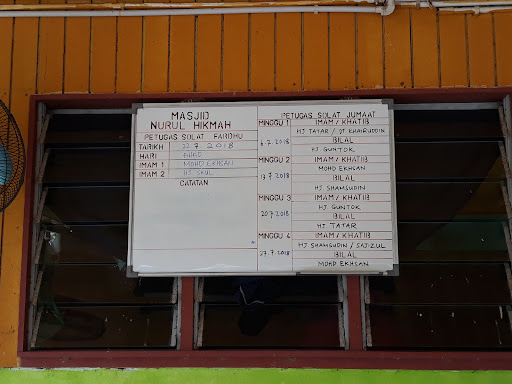 MASJID
NURUL HIKMAH
PETUGAS SOLAT FARDHU
TARIKH 22.7.2018
HARI AHAD
IMAM 1 MOHD EKHSAN
IMAM 2
CATATAN
PETUGAS SOLAT JUMAAT
MINGGU 1 IMAM / KHATIB
HJ TATAR / DT KHAIRUDDIN
BILAL
6.7.2018
HJ GUNTOK
MINGGU 2 IMAM / KHATIB
MOHD EKHSAN
BILAL
13.7.2018
HJ SHAMSUDIN
MINGGU 3 IMAM / KHATIB
HJ GUNTOK
20.7.2018
BILAL
HJ TATAR
MINGGU 4 IMAM / KHATIB
HJ SHAMSUDIN / SAIZUL
27.7.2018
BILAL
MOHD EKHSAN